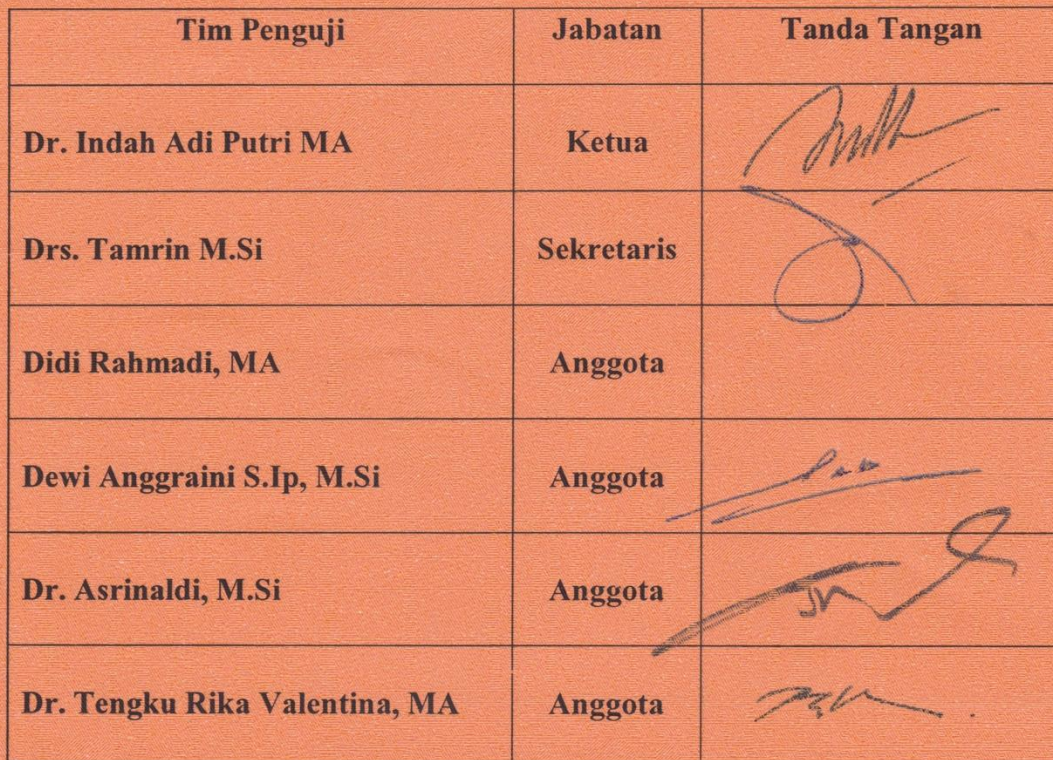 Tim Penguji Jabatan Tanda Tangan
Dr. Indah Adi Putri MA Ketua
Drs. Tamrin M.Si Sekretaris
Didi Rahmadi, MA Anggota
Dewi Anggraini S.Ip, M.Si Anggota
Dr. Asrinaldi, M.Si Anggota
Dr. Tengku Rika Valentina, MA Anggota